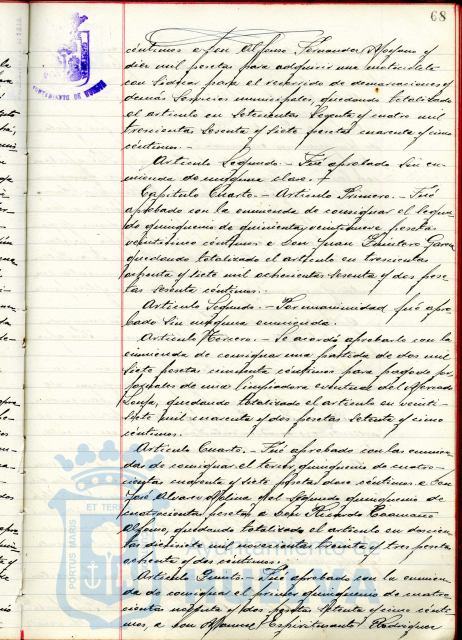 68
céntimos a Don Alfonso Fernández y
diez mil pesetas para adquirir una motocicleta
con sidecar para el recorrido de demarcaciones y
demás servicios municipales, quedando totalizado
el artículo en setecientas y cuatro mil
trescientas sesenta y siete pesetas cuarenta y cinco
céntimos.
Artículo Segundo.- Fué aprobado sin en-
mienda de ninguna clase.
Capítulo Cuarto.- Artículo Primero.- Fué
aprobado con la enmienda de consignar el segun-
do quinquenio de quinientas veintinueve pesetas
veinticinco céntimos a Don Juan García
quedando totalizado el artículo en trescientas
y siete mil ochocientas sesenta y dos pese-
tas sesenta céntimos.
Artículo Segundo.- Por unanimidad fué apro-
bado sin ninguna enmienda.
Artículo Tercero.- Se acordó aprobarlo con la
enmienda de consignar una partida de dos mil
siete pesetas cincuenta céntimos para pago de jor-
nales de una limpiadora eventual del Mercado
quedando totalizado el artículo en veinti-
siete mil cuarenta y dos pesetas setenta y cinco
céntimos.
Artículo Cuarto.- Fué aprobado con las enmien-
das de consignar el tercer quinquenio de cuatro-
cientas cuarenta y siete pesetas doce céntimos a Don
José Alvarez Molina y el segundo quinquenio de
cuatrocientas pesetas a Don Ricardo Caamaño
Alfaro, quedando totalizado el artículo en doscien-
tas y tres pesetas
y dos céntimos.
Artículo Quinto.- Fué aprobado con la enmien-
da de consignar el primer quinquenio de cuatro-
cientas noventa y dos pesetas setenta y cinco cénti-
mos, a Don Manuel Espiritusanto Rodríguez
AYUNTAMIENTO DE HUELVA
Ayuntamiento de
HUELVA
PORTUS MARIS
ET TER